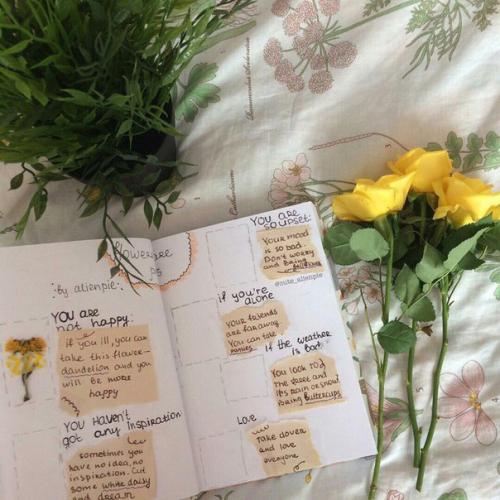 flower are
ps
:by alienpie:
YOU ARE
not happy:
if you ill, you can
take this flower-
dandelion and you
will be more
happy
YOU HAVEN'T
got any inspiration
sometimes you
have no idea, no
inspiration. Cut
some white daisy
and dream
YOU ARE
SO UPSET:
Your mood
is so bad.
Don't worry
and bring
@cute_alienpie
if you're
alone
Your friends
are far away.
You can take
pansies
if the weather
is bad
You look to
the tree and
it's rain or snow
bring Buttercups
Love
Take dover
and love
everyone